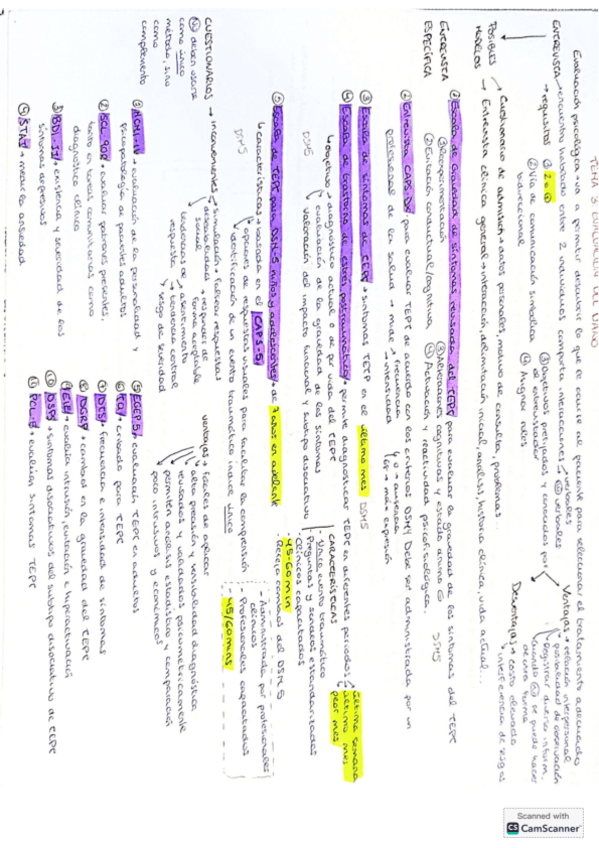 TEMA 3 EVALUACIÓN DEL DAÑO
Evaluación psicológica → va a permitir descubrir lo que le ocurre al paciente para seleccionar el tratamiento adecuado
ENTREVISTA → encuentro hablado entre 2 individuos, comporta interacciones verbales
no verbales
→ requisitos ① 2 o +
② Vía de comunicación simbólica bidireccional
③ Objetivos prefijados y conocidos por el entrevistador
④ Asignar roles
Ventajas → relación interpersonal
posibilidad de observación
registrar diversa inform.
cuando no se puede hacer de otra forma
Desventajas → costo elevado
interferencia de sesgos
POSIBLES MODELOS
→ Cuestionario de admisión → datos personales, motivo de consulta, problemas.
→ Entrevista clínica general → interacción, delimitación inicial, análisis, historia clínica, vida actual...
ENTREVISTA ESPECÍFICA
① Escala de gravedad de síntomas revisada del TEPT para evaluar la gravedad de los síntomas del TEPT DSM5
① Reexperimentación
② Evitación conductual/cognitiva
③ Alteraciones cognitivas y estado ánimo
④ Activación y reactividad psicofisiológica.
② Entrevista CAPS-DX para evaluar TEPT de acuerdo con los criterios DSM4 Debe ser administrada por un profesional de la salud → mide frecuencia
intensidad
③ Escala de síntomas de TEPT → síntomas TEPT en el último mes DSM5
④ Escala de trastorno de estrés postraumático → permite diagnosticar TEPT en diferentes periodos
última semana
último mes
peor mes
DSM5
objetivo → diagnóstico actual o de por vida del TEPT
evaluación de la gravedad de los síntomas
valoración del impacto funcional y subtipo disociativo
CARACTERÍSTICAS
- Único evento traumático
- Preguntas y sondeos estandarizados
- Clínicos capacitados
- 45-60 min
- Recoge cambios del DSM 5
⑤ Escala de TEPT para DSM-5 niños y adolescentes → de 7 años en adelante
características → basada en el CAPS-5
opciones de respuestas visuales para facilitar la comprensión
identificación de un evento traumático índice único
DSM5
- Administrada por profesionales clínicos
- Profesionales capacitados
- 45/60 mins
CUESTIONARIOS
No deben usarse como único método, sino como complemento
→ inconvenientes → simulación → falsear respuestas
deseabilidad social → responder de forma aceptable
tendencias de respuesta → asentimiento
tendencia central
sesgo de severidad
ventajas → fáciles de aplicar
alta precisión y sensibilidad diagnóstica
revisados y validados psicométricamente
permiten análisis estadístico y comparación
poco intrusivos y económicos
① evaluación de la personalidad y psicopatología de pacientes adultos
② SCL-90R → evaluar patrones presentes, tanto en tareas comunitarias como diagnóstico clínico
③ BDI → existencia y severidad de los síntomas depresivos
④ STAI → medir la ansiedad
⑤ EGEP5 → evaluación TEPT en adultos
⑥ cribado para TEPT
⑦ DTS → frecuencia e intensidad de síntomas
⑧ cambios en la gravedad del TEPT
⑨ evalúa intrusión, evitación e hiperactivación
⑩ DSPS → síntomas disociativos del subtipo disociativo de TEPT
⑪ PCL-5 → evalúan síntomas TEPT
Scanned with
CS CamScanner